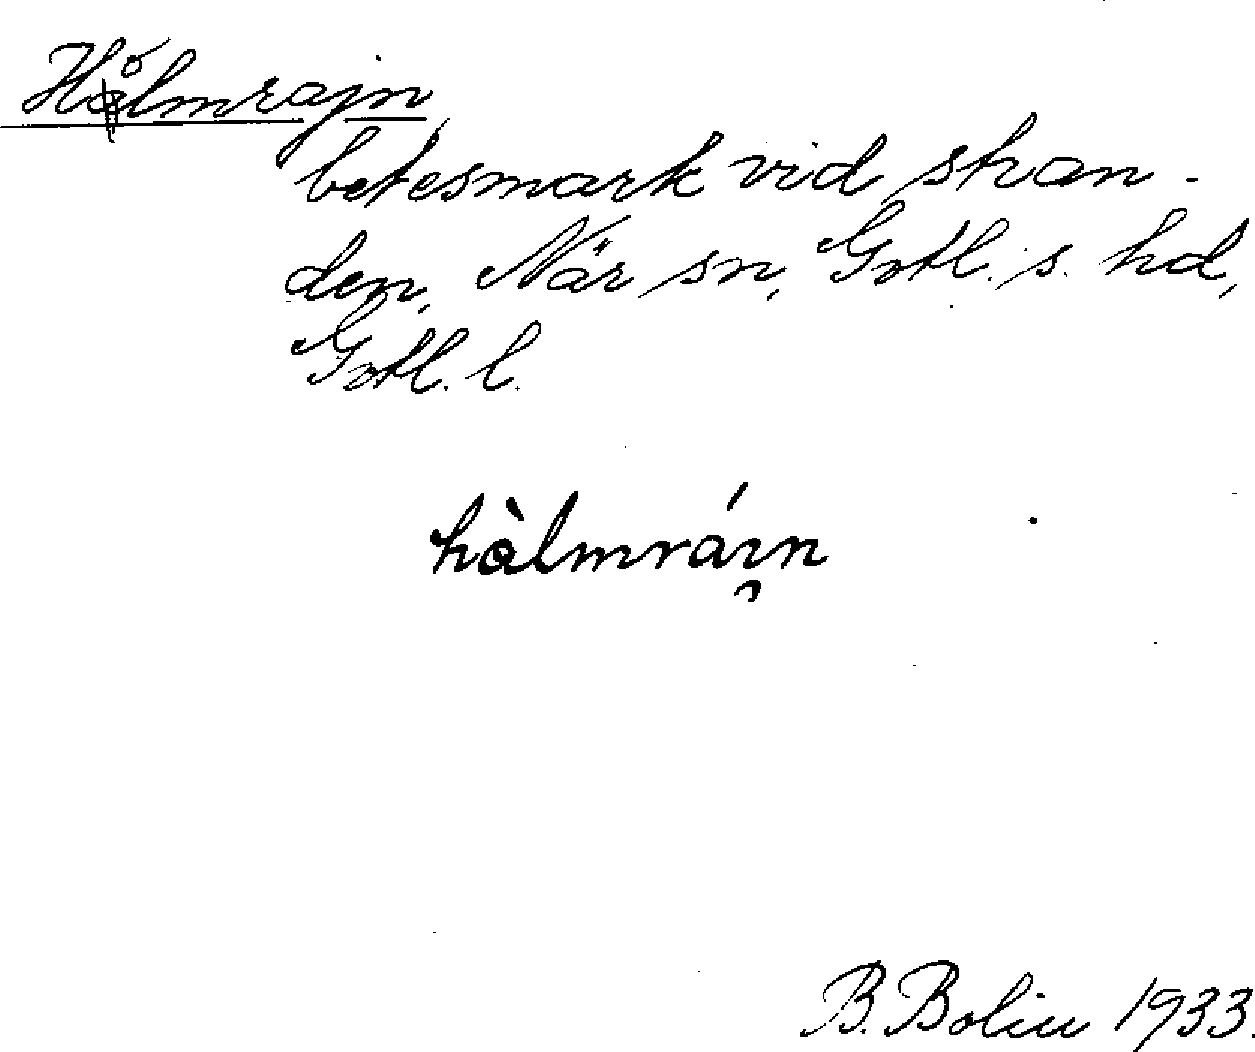 Hålmrajn,
betesmark vid stran-
den, När sn, Gotl. s. hd,
Gotl. l.
hàlmráın̯
B. Bolin 1933.